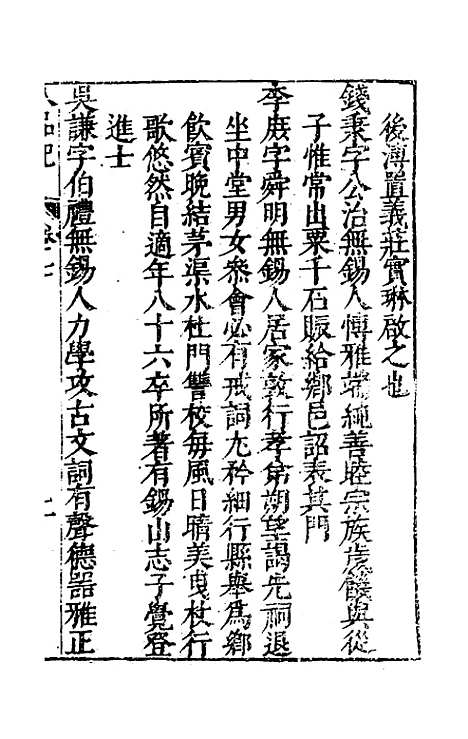 後溥置義莊實琳啟之也
錢秉字公治無錫人慱雅端純善睦宗族歲饑與從
子惟常出粟千石賑給鄉邑詔表其門
李庶字舜明無錫人居家敦行孝弟朔望謁先祠退
坐中堂男女衆會必有戒詞尤矜細行縣舉爲鄉
飲賓晚結茅渠水杜門讐校每風日晴美曳杖行
歌悠然自適年八十六卒所著有錫山志子覺登
進士
吳謙字伯禮無錫人力學攻古文詞有聲德器雅正
人品記 卷七